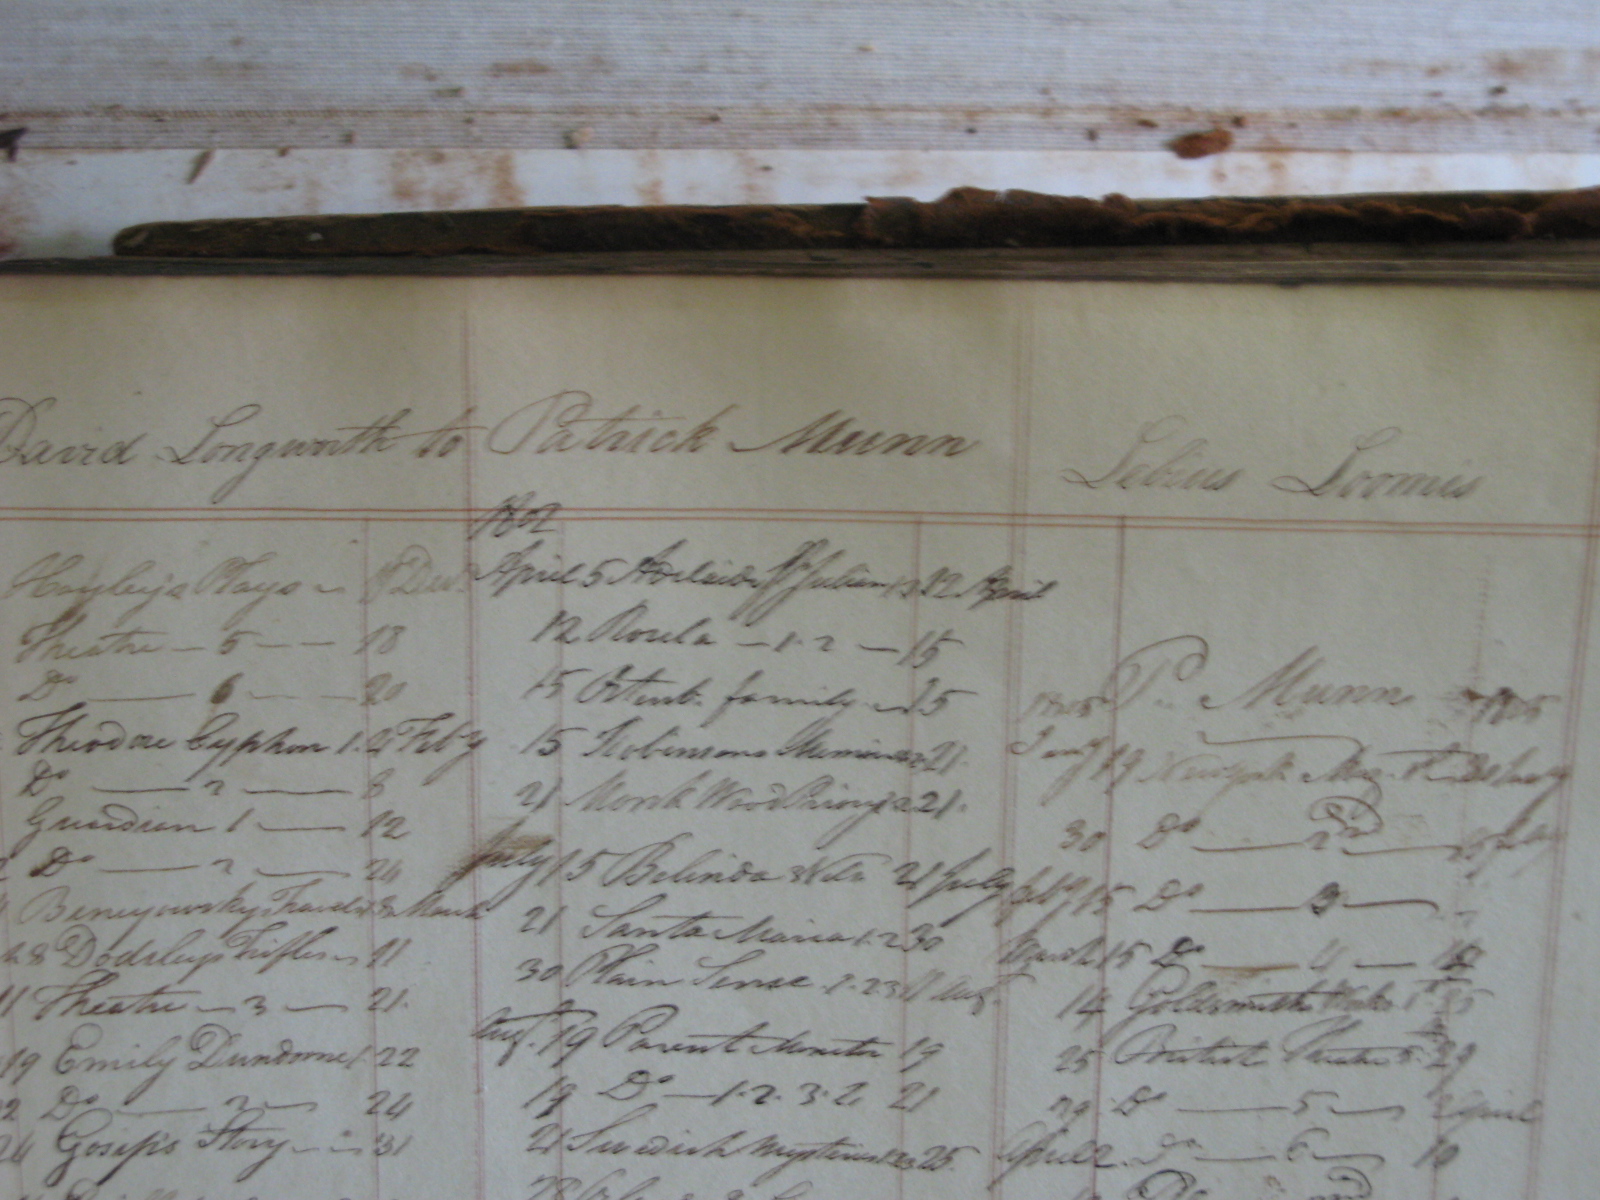 David Longworth to Patrick Munn
Lebius Loomis
Hayley's Plays
Theatre — 5 — 18
Do — 6 — 20
Theodore Cyphon 1. 2 Feby
Do — 2 — 8
Guardian 1 — 12
Do — 2 — 24
Benyowsky Travels March
28 Dodsley's Trifles 11
11 Theatre — 3 — 21
19 Emily Dundorne 1. 22
22 Do — 2 — 24
24 Gosip's Story 31
1802
April 5 Adelaide St Julian 12 April
12 Rosela — 1. 2 — 15
15 family 15
15 Robinsons 21.
21 Monk Wood Priory 1 2 21.
July 15 Belinda 21 July
21 Santa Maria 1. 2 30
30 Plain Sense 1. 2 3 11 Aug.
Augt. 19 Parent Monitor 19
19 Do — 1. 2. 3. 21
21 Swedish Mysteries 1 2 3 25
P. Munn 1805
Jany 19 New York Mag. 1st
30 Do — 2nd
Feby 15 Do — 3 —
March 15 Do — 4 —
14 Goldsmiths Works 1st 25
25 British Theatre 5 29
29 Do — 5 — 2 April
April 2 Do — 6 — 10